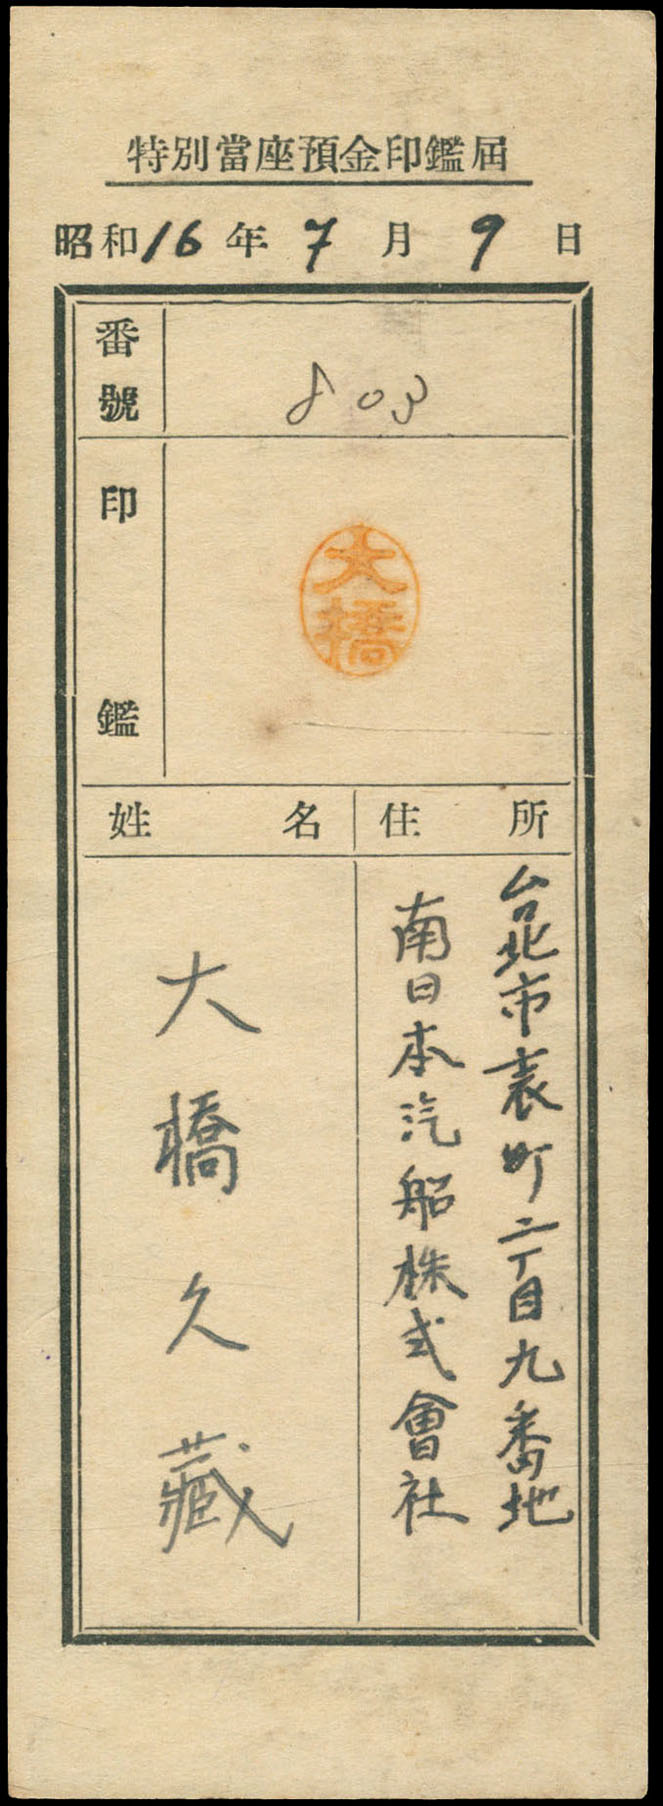 特別當座預金印鑑届
昭和16年7月9日
番號
803
印鑑
大橋
住所
姓名
台北市表町二丁目九番地
南日本汽船株式會社
大橋久藏